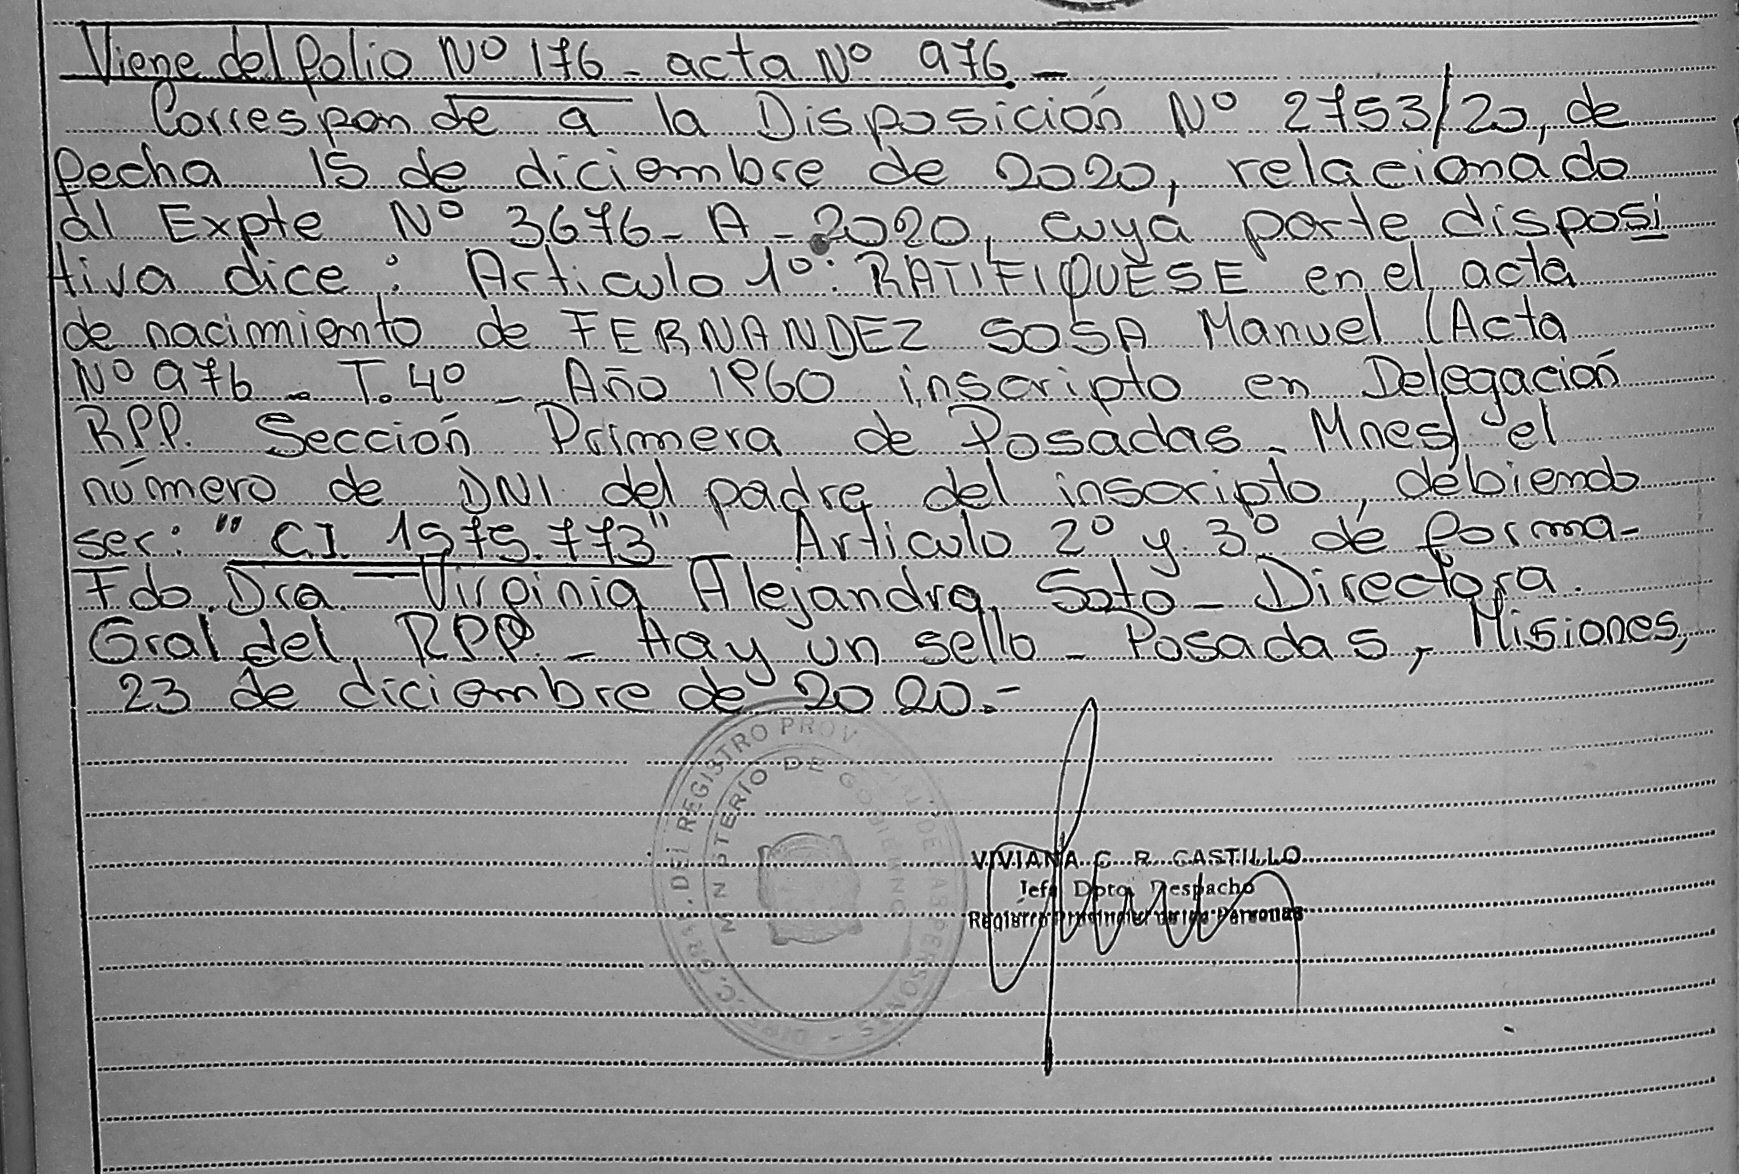 Viene del folio Nº 176 - acta Nº 976.-
Corresponde a la Disposición Nº 2753/20, de
fecha 15 de diciembre de 2020, relacionado
al Expte Nº 3676-A-2020, cuya parte disposi
tiva dice: Articulo 1º: RATIFIQUESE en el acta
de nacimiento de FERNANDEZ SOSA Manuel (Acta
Nº 976 - T. 4º - Año 1960 inscripto en Delegación
RPP. Sección Primera de Posadas - Mnes) el
número de DNI del padre del inscripto, debiendo
ser: "C.I. 1575.773" - Articulo 2º y 3º de forma-
Fdo. Dra. Virginia Alejandra Soto - Directora
Gral del RPP - Hay un sello - Posadas, Misiones,
23 de diciembre de 2020.-
DIREC. GRAL. DEL REGISTRO PROVINCIAL DE LAS PERSONAS -
MINISTERIO DE GOBIERNO
VIVIANA C. R. CASTILLO
Jefa Dpto. Despacho
Registro Provincial de las Personas